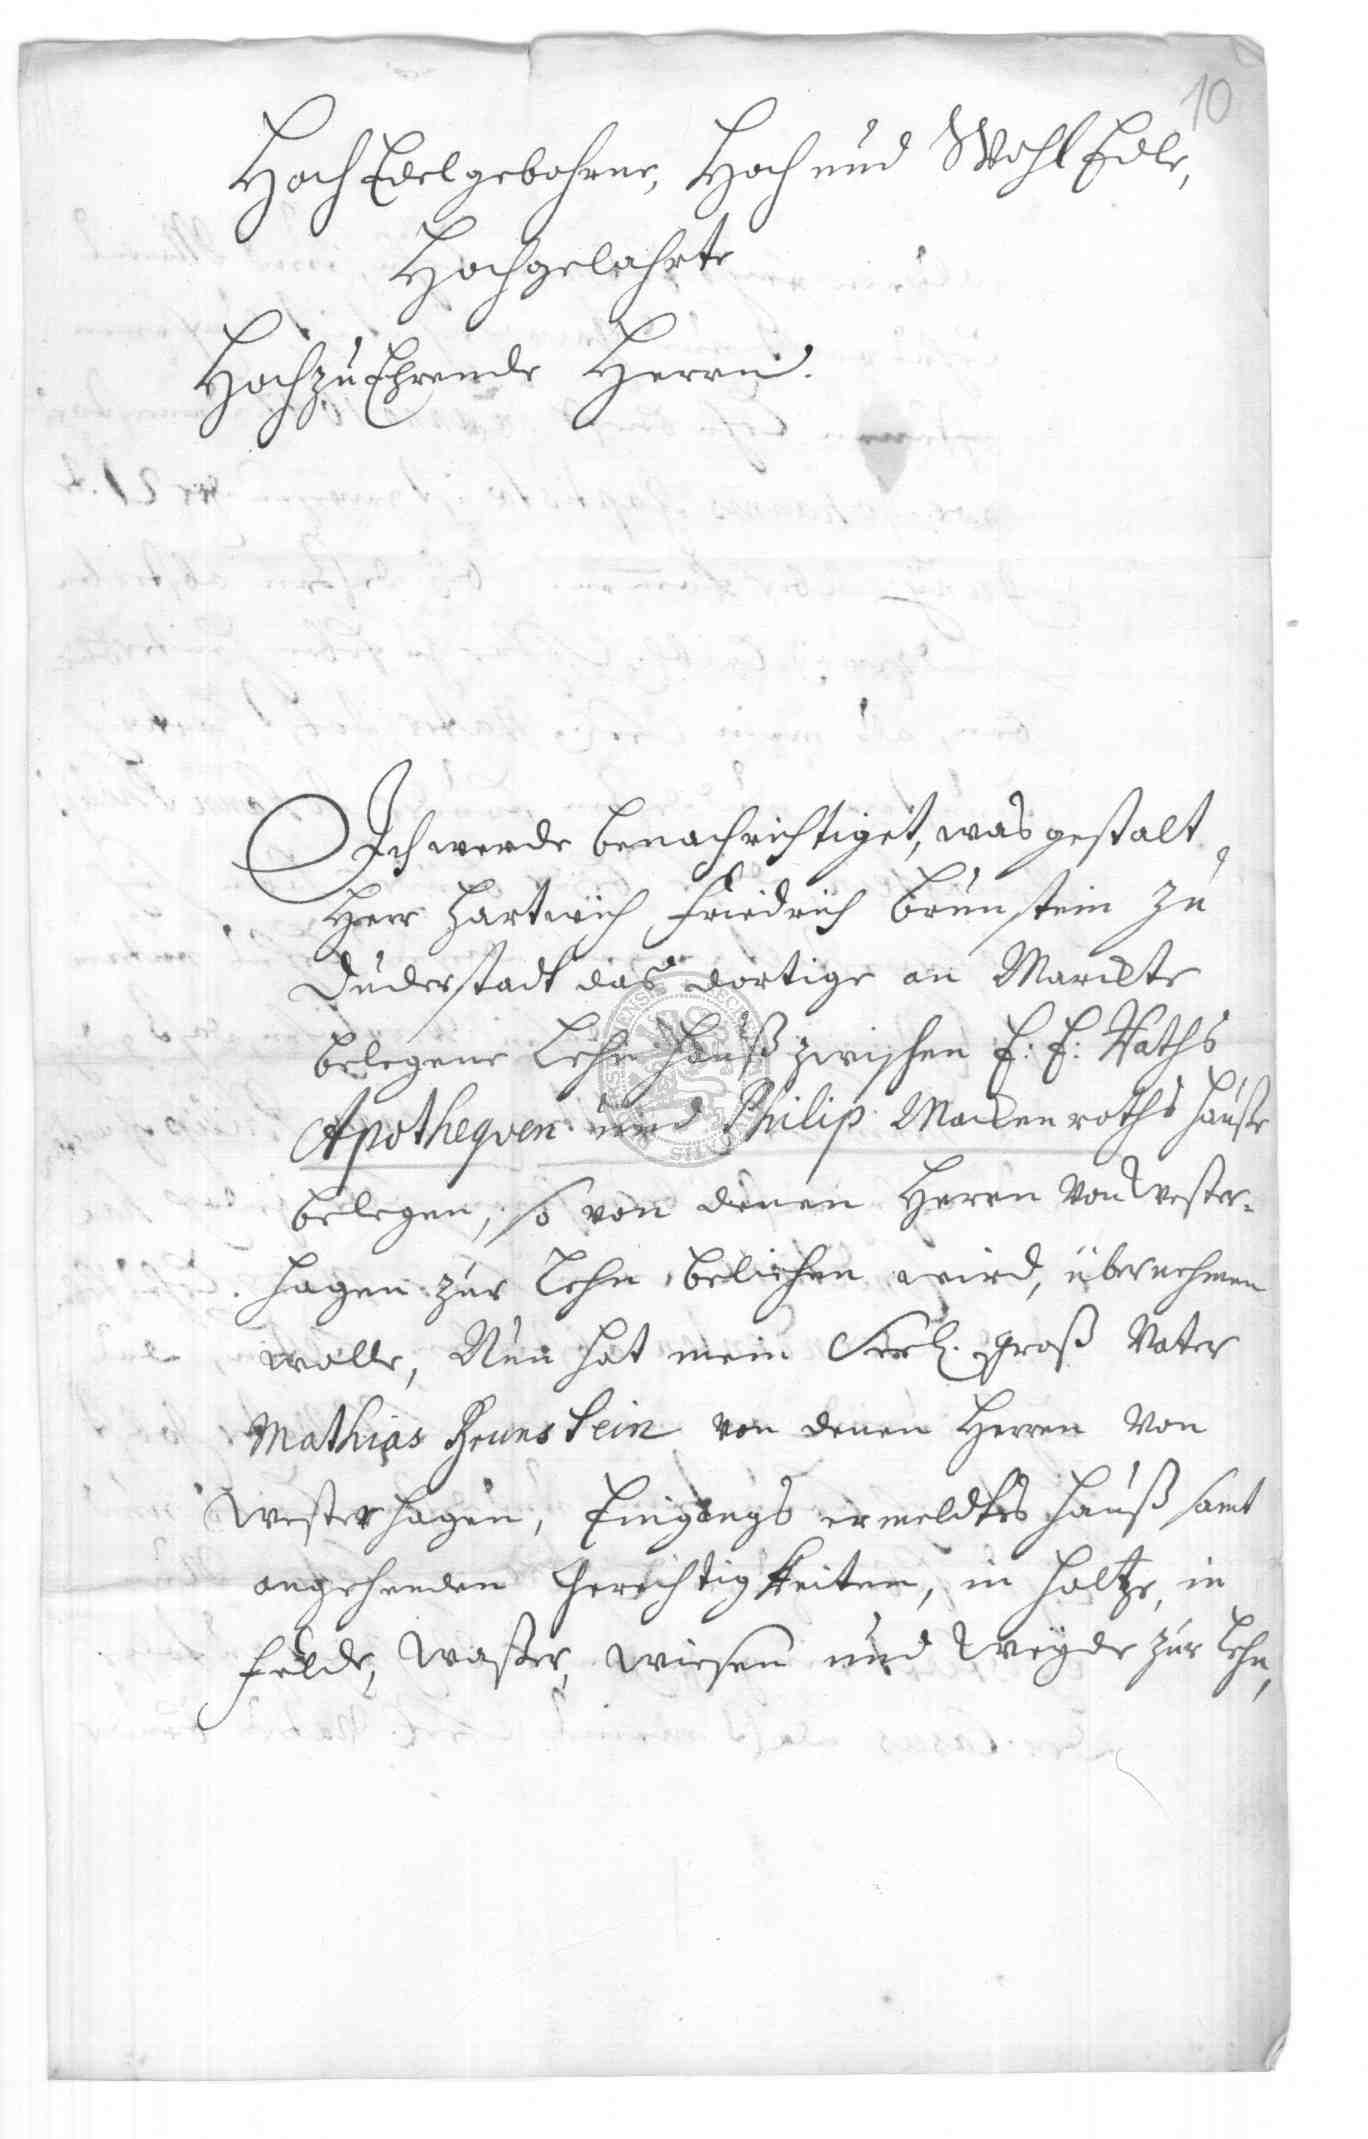 10
Hoch Edelgebohrne, Hoch und Wohl Edle,
Hochgelahrte
Hochzu Ehrende Herrn.
Ich werde benachrichtiget, was gestalt
Herr Hartwich Friedrich Brunstein zu
Duderstadt das dortige an Marckte
belegene Lehn Hauß zwischen E. E. Raths
Apotheqven und Philip Mackenroths Hause
belegen, so von denen Herrn von Wester-
hagen zur Lehn beliehen wird, übernehmen
wolle, Nun hat mein Seel. Groß Vater
Mathias Brunstein von denen Herren von
Westerhagen, Eingangs ermeldtes Hauß samt
angehenden Gerechtigkeiten, in Holtze, in
Felde, Waßer, Wiesen und Weyde zur Lehn,